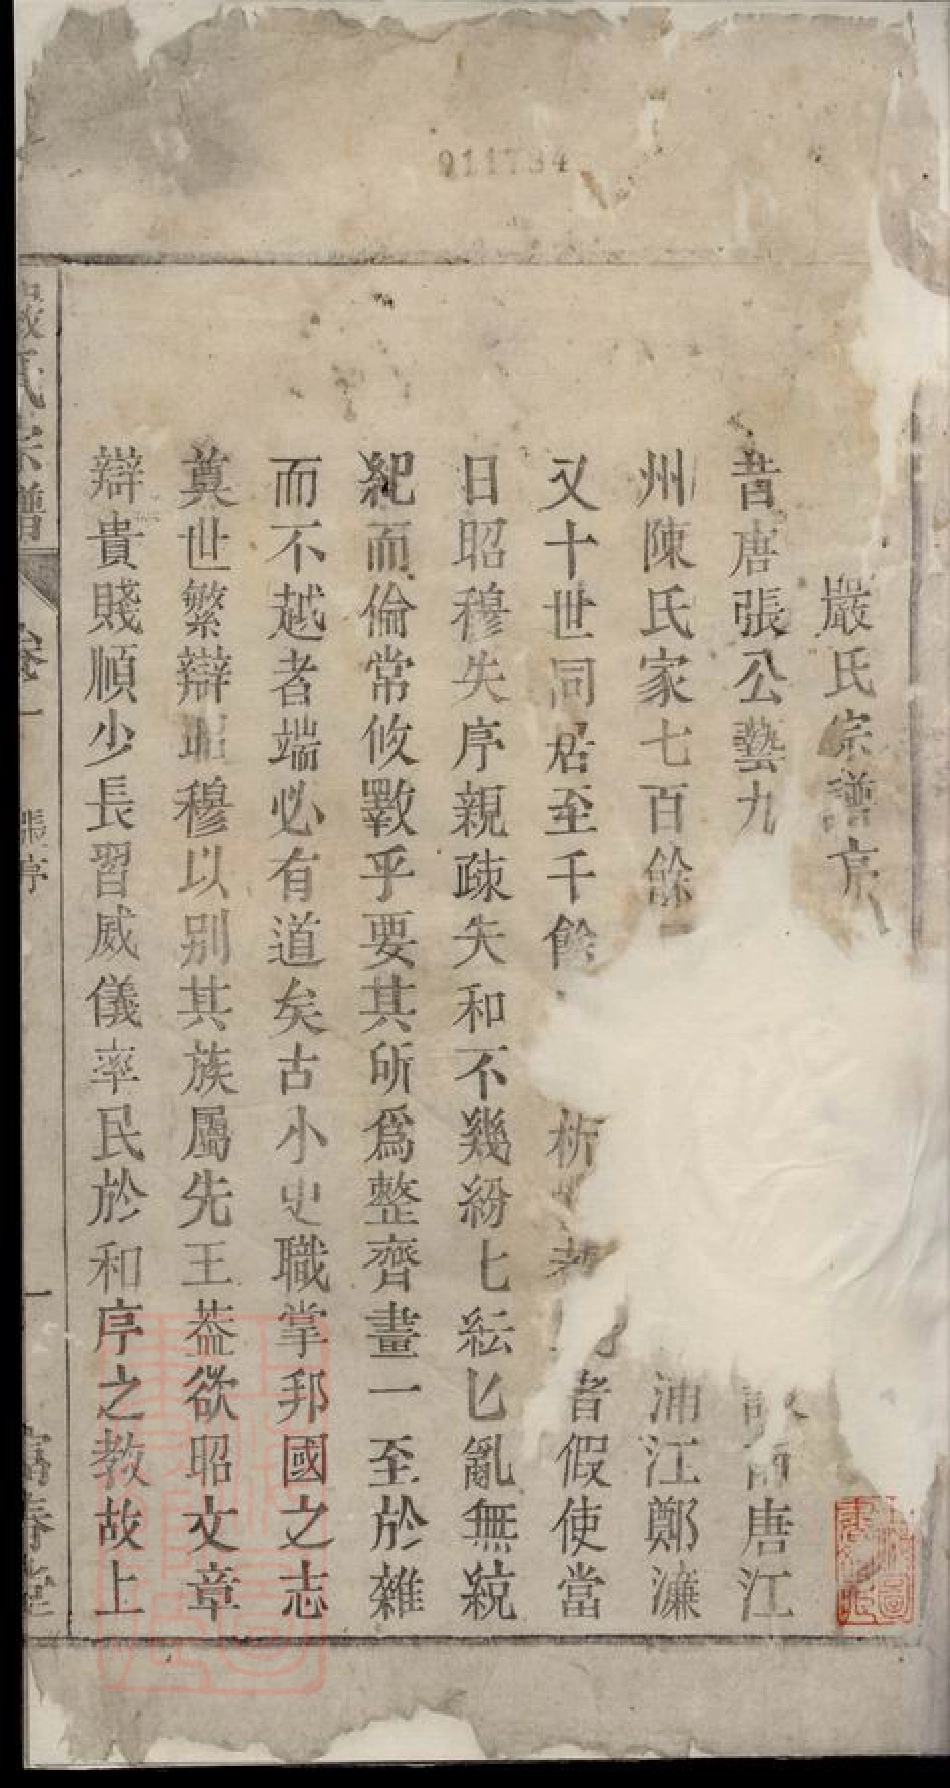 911734
嚴氏宗譜序
昔唐張公藝九南唐江
州陳氏家七百餘浦江鄭濂
又十世同居至千餘析者假使當
日昭穆失序親疎失和不幾紛匕紜匕亂無統
紀而倫常攸斁乎要其所爲整齊畫一至於雜
而不越者端必有道矣古小史職掌邦國之志
奠世繁辯昭穆以别其族屬先王葢欲昭文章
辯貴賤順少長習威儀率民於和序之教故上
嚴氏宗譜
卷一
張序
一
富春堂